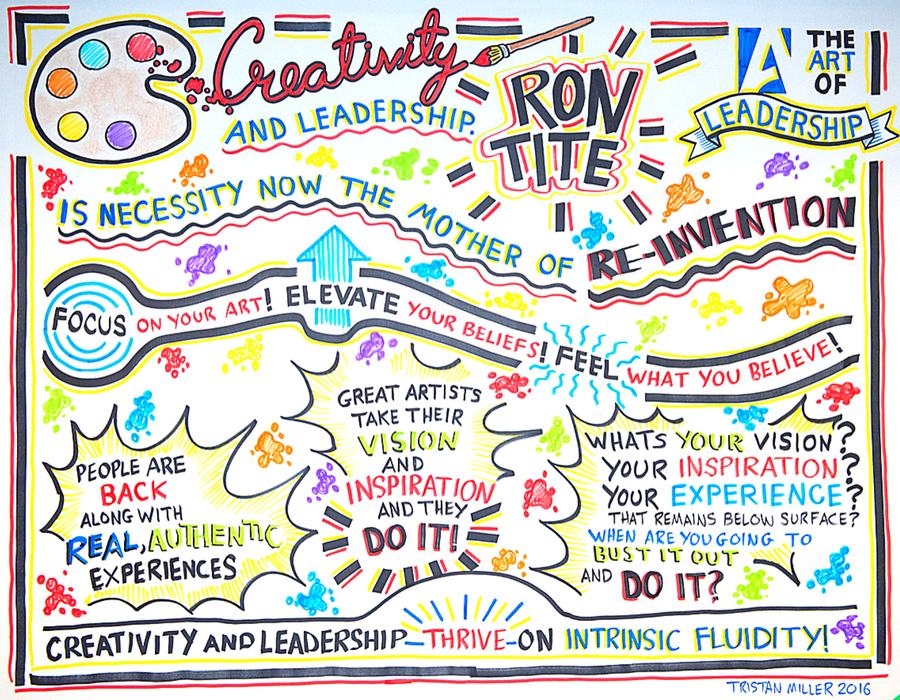 Creativity
AND LEADERSHIP.
RON
TITE
THE
ART
OF
LEADERSHIP
IS NECESSITY NOW THE MOTHER OF
RE-INVENTION
FOCUS ON YOUR ART! ELEVATE YOUR BELIEFS! FEEL WHAT YOU BELIEVE!
PEOPLE ARE
BACK
ALONG WITH
REAL, AUTHENTIC
EXPERIENCES
GREAT ARTISTS
TAKE THEIR
VISION
AND
INSPIRATION
AND THEY
DO IT!
WHATS YOUR VISION?
YOUR INSPIRATION?
YOUR EXPERIENCE?
THAT REMAINS BELOW SURFACE?
WHEN ARE YOU GOING TO
BUST IT OUT
AND DO IT?
CREATIVITY AND LEADERSHIP-THRIVE-ON INTRINSIC FLUIDITY!
TRISTAN MILLER 2016